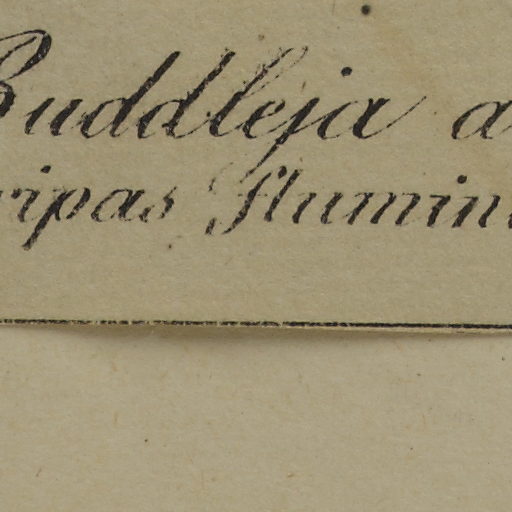 Buddleja a
ripas flumin